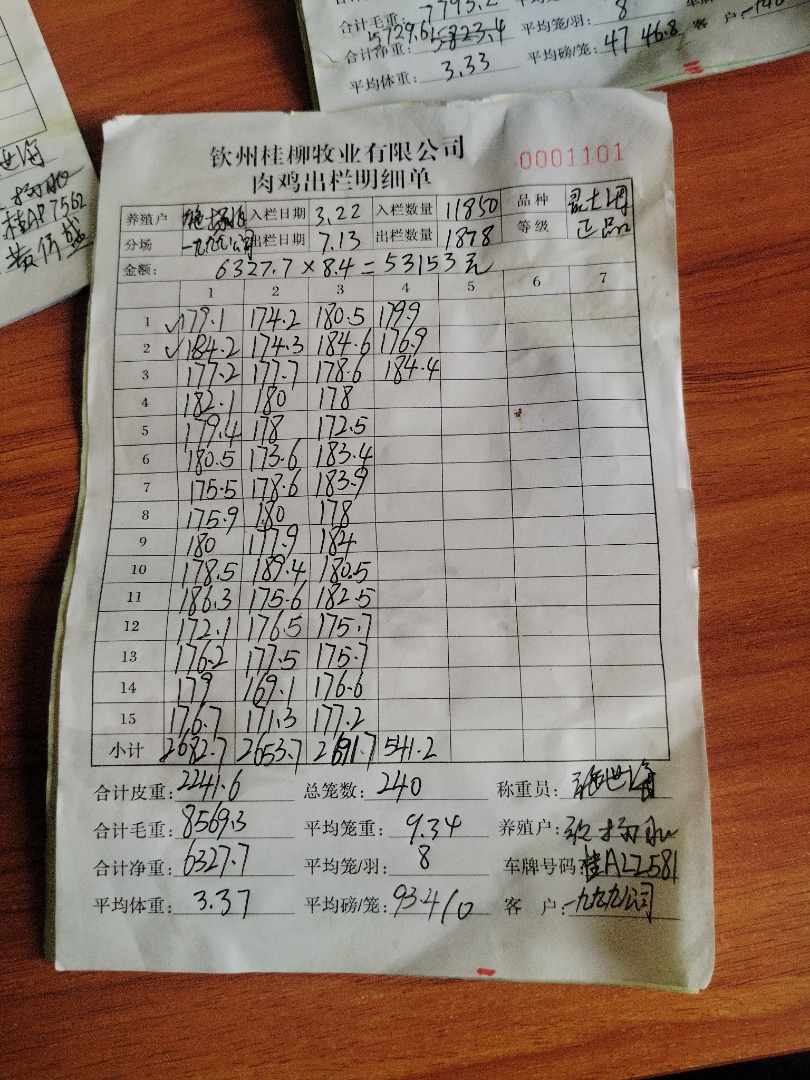 合计毛重: 7793.2
合计净重: 5729.6 5823.4 平均笼/羽: 8
平均体重: 3.33 平均磅/笼: 47 46.8 客 户:
桂AP7562
钦州桂柳牧业有限公司 0001101
肉鸡出栏明细单
养殖户 入栏日期 3.22 入栏数量 11850 品种
分场 一九九九公司 出栏日期 7.13 出栏数量 1878 等级 正品
金额: 6327.7×8.4=53153元
1 2 3 4 5 6 7
1 ✓179.1 174.2 180.5 179.9
2 ✓184.2 174.3 184.6 176.9
3 177.2 177.7 178.6 184.4
4 182.1 180 178
5 179.4 178 172.5
6 180.5 173.6 183.4
7 175.5 178.6 183.9
8 175.9 180 178
9 180 177.9 184
10 178.5 189.4 180.5
11 186.3 175.6 182.5
12 172.1 176.5 175.7
13 176.2 177.5 175.7
14 179 169.1 176.6
15 176.7 171.3 177.2
小计 2682.7 2653.7 2691.7 541.2
合计皮重: 2241.6 总笼数: 240 称重员:
合计毛重: 8569.3 平均笼重: 9.34 养殖户:
合计净重: 6327.7 平均笼/羽: 8 车牌号码: 桂ALZ581
平均体重: 3.37 平均磅/笼: 93.4/10 客 户: 一九九九公司